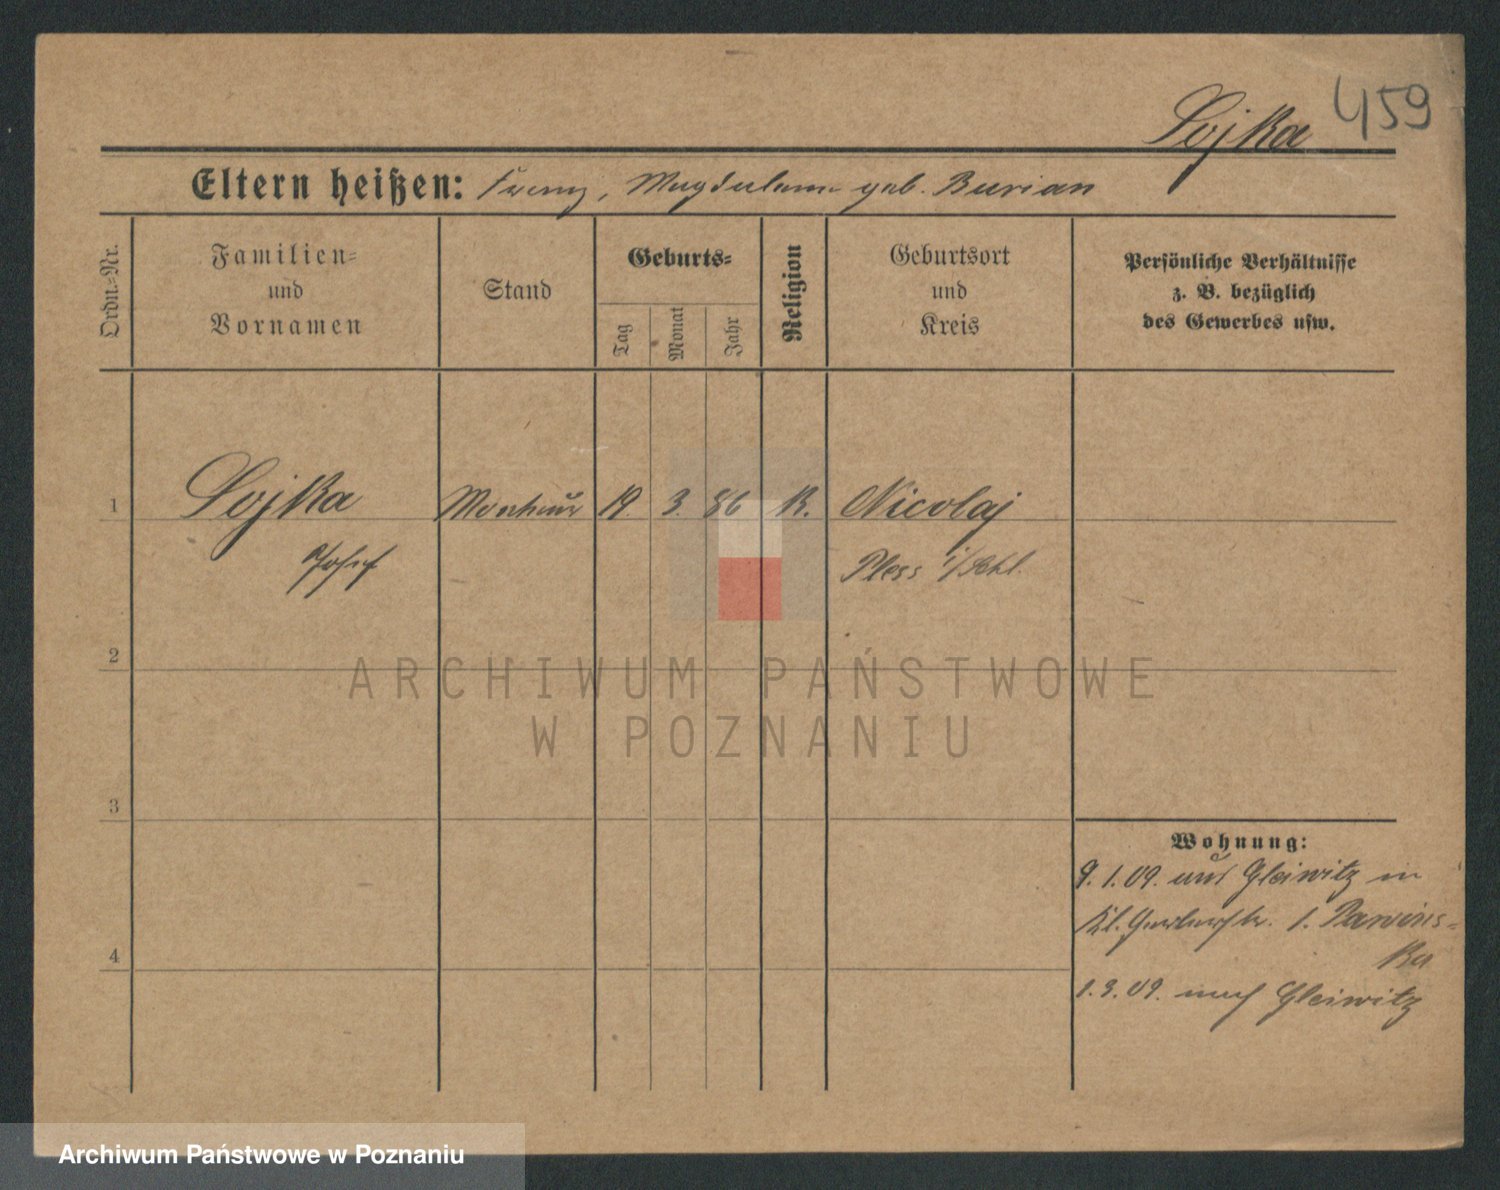 459
Sojka
Eltern heißen: Franz, Magdalena geb. Burian
Ordn.-Nr.
Familien-
und
Vornamen
Stand
Geburts-
Tag
Monat
Jahr
Religion
Geburtsort
und
Kreis
Persönliche Verhältnisse
z. B. bezüglich
des Gewerbes usw.
1
Sojka
Monteur
19.
3.
86
K.
Nicolaj
Josef
Pless i/Schl.
2
ARCHIWUM PAŃSTWOWE
W POZNANIU
3
Wohnung:
9. 1. 09. aus Gleiwitz in
Kl. Gerberstr. 1. Pawins-
ka
4
1. 3. 09. nach Gleiwitz
Archiwum Państwowe w Poznaniu